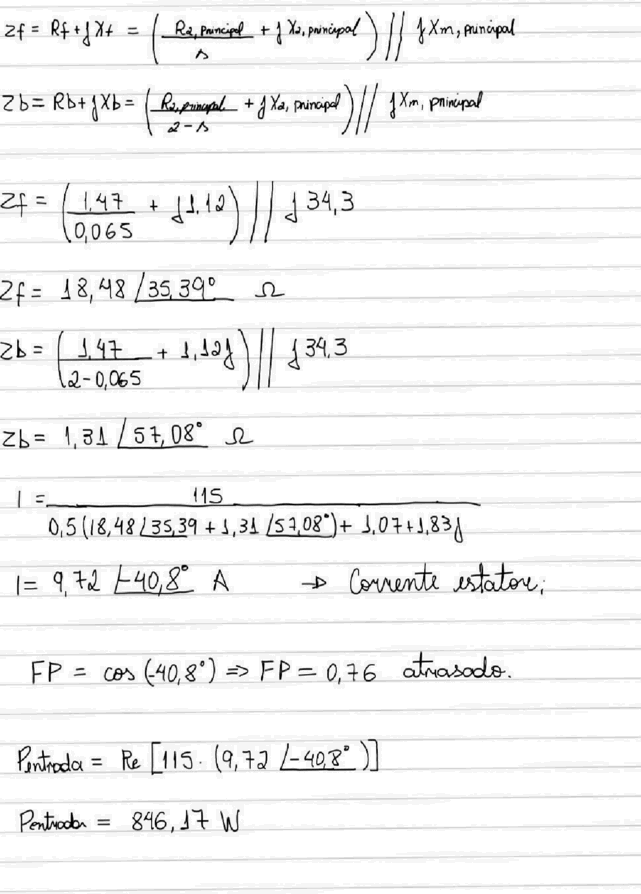 Zf = Rf + jXf = (R2, principal / s + jX2, principal) // jXm, principal
Zb = Rb + jXb = (R2, principal / 2-s + jX2, principal) // jXm, principal
Zf = (1,47 / 0,065 + j1,12) // j34,3
Zf = 18,48 /35,39° Ω
Zb = (1,47 / 2-0,065 + 1,12j) // j34,3
Zb = 1,31 /57,08° Ω
I = 115 / 0,5(18,48 /35,39 + 1,31 /57,08°) + 1,07+1,83j
I = 9,72 /-40,8° A → Corrente estator;
FP = cos (-40,8°) => FP = 0,76 atrasado.
Pentrada = Re [115 · (9,72 /-40,8°)]
Pentrada = 846,17 W